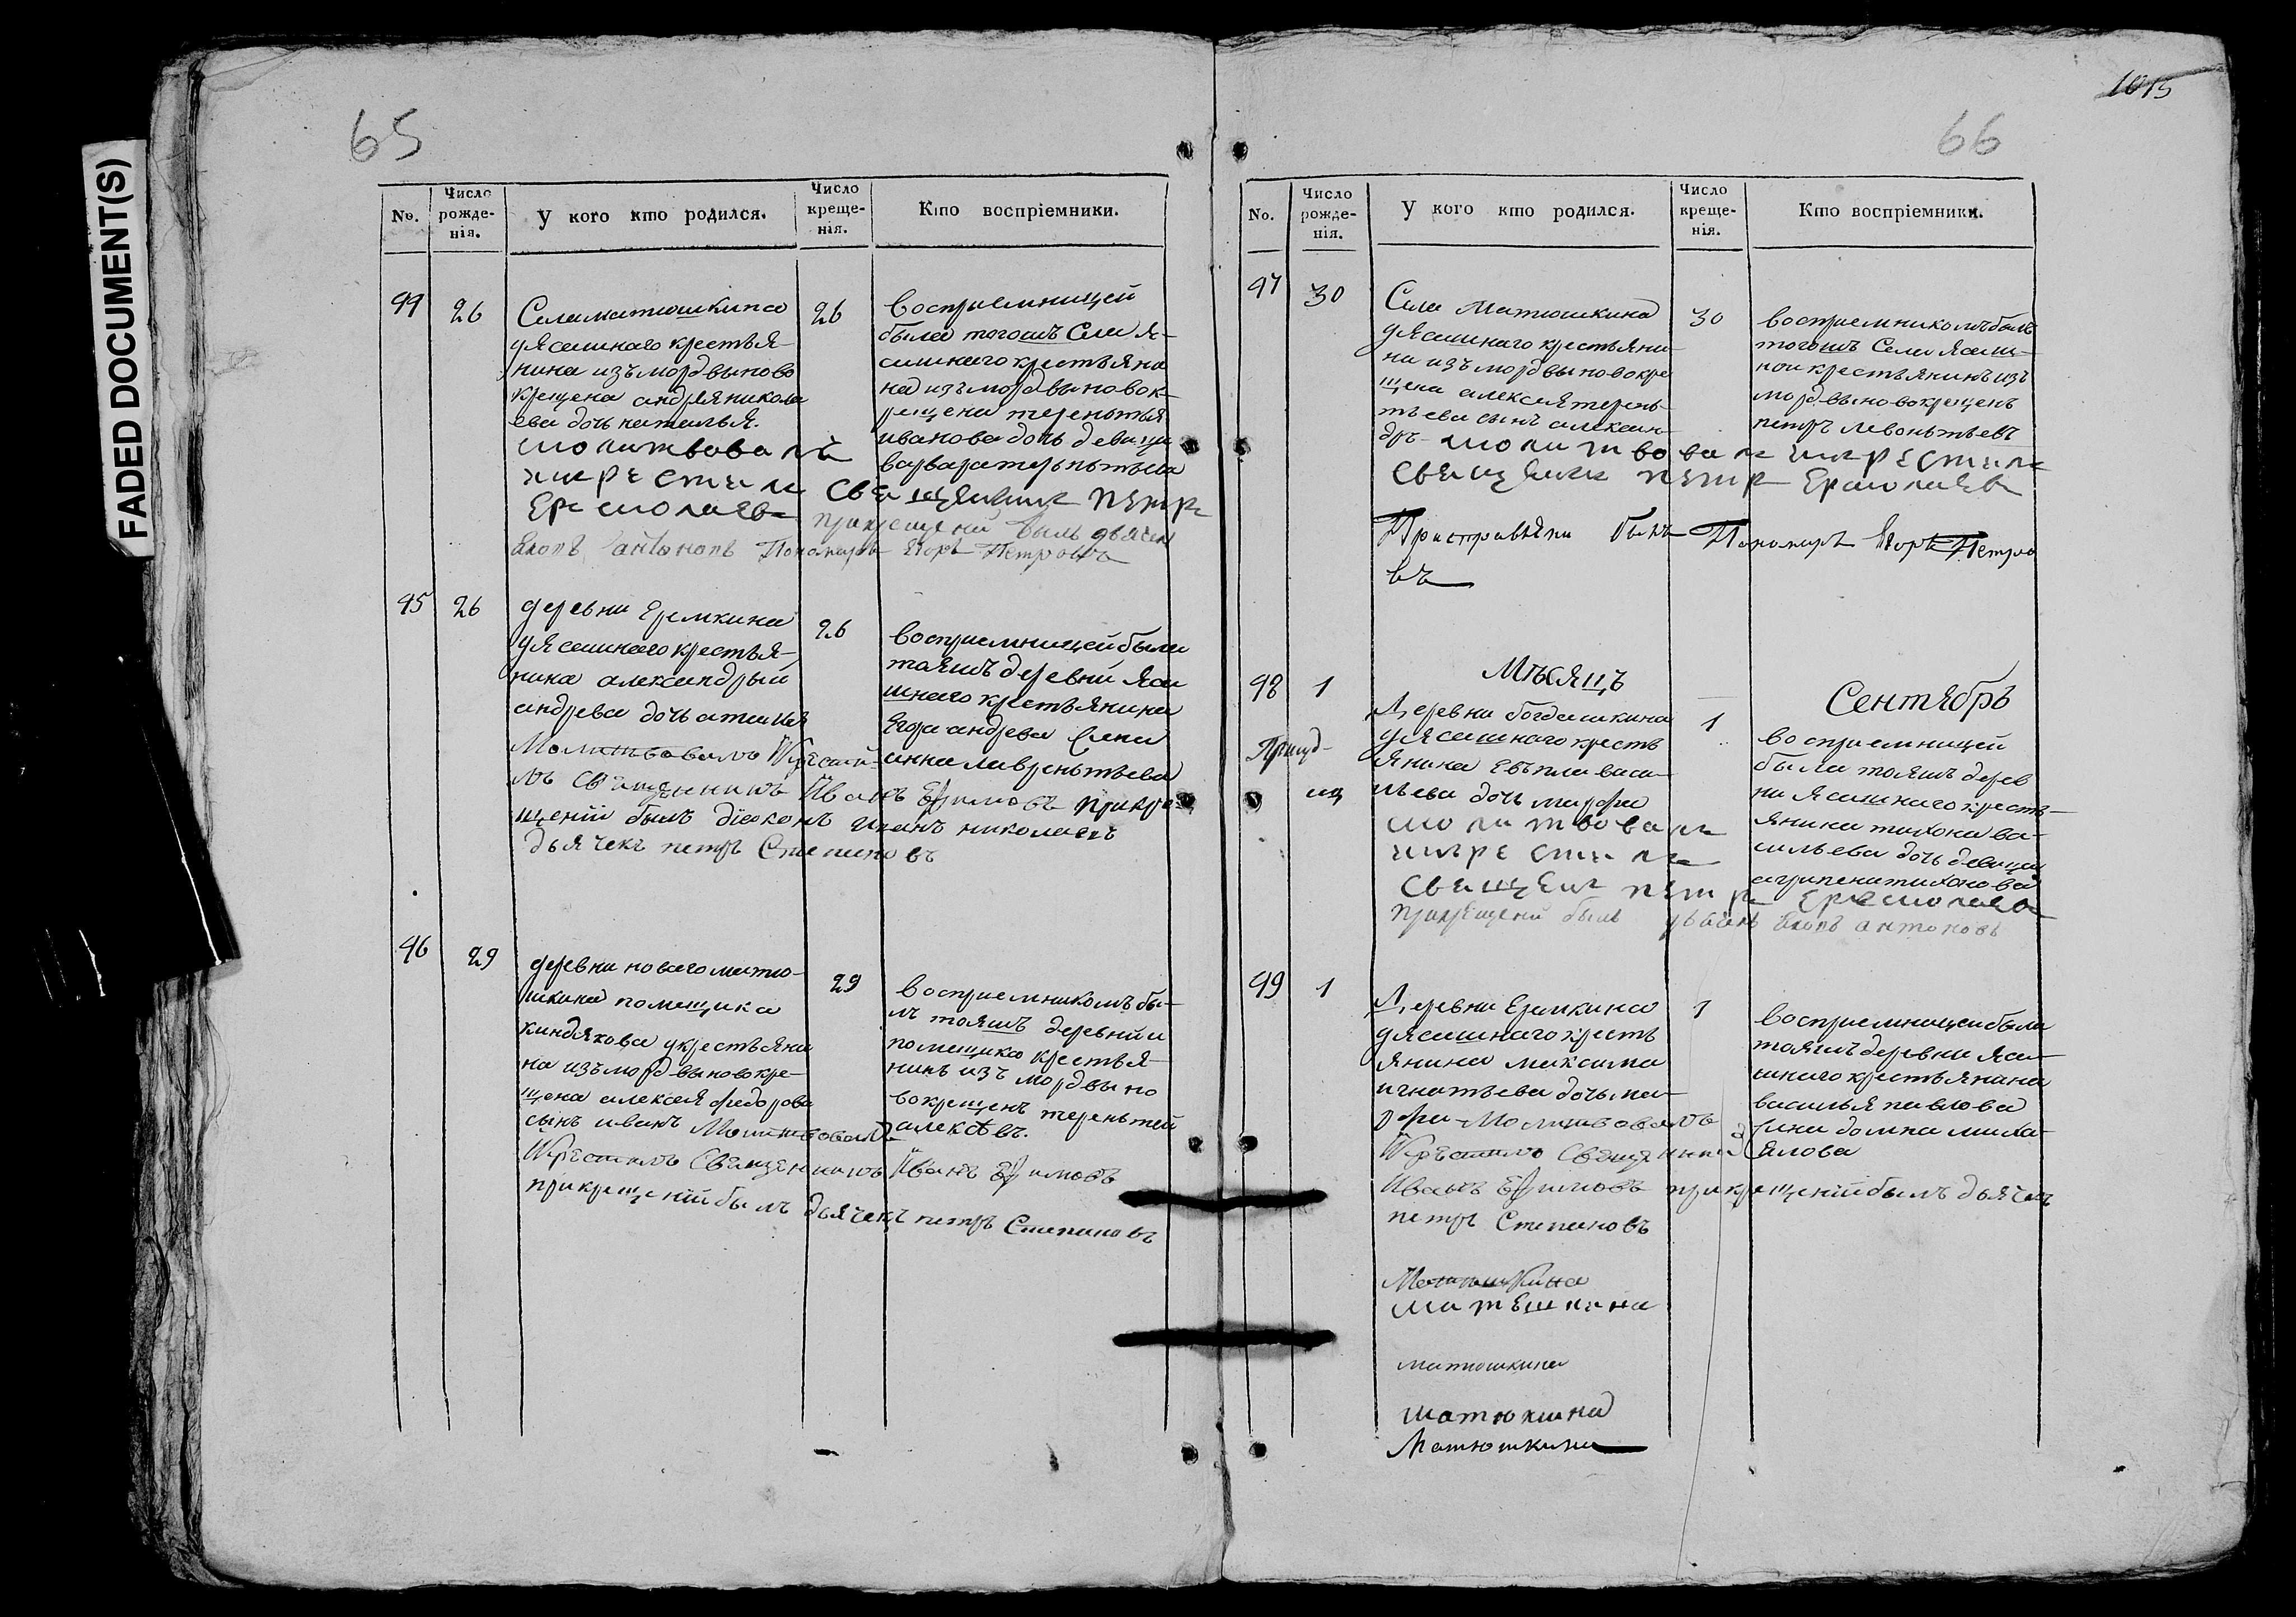 FADED DOCUMENT(S)
65
No.
Число рожде-нія.
У кого кто родился.
Число креще-нія.
Кто воспріемники.
94
26
Села матюшкина
у Ясашнаго крестья-
нина изъ мордвы ново
крещена андрея никола
ева дочь наталья.
молитвовалъ
икрестилъ свещенникъ петръ
Ермолаевъ прикрещени былъ дьячек
Яковъ антоновъ Пономарь Егоръ Петровъ
26
восприемницей
была тогошъ села я-
сашнаго крестьяни
на изъ мордвы новок-
рещена терентья
иванова дочь девица
варвара терентьева
95
26
деревни Еремкина
у Ясашнаго крестья-
нина александры
андрева дочь
Молитвовалъ Икрести-
лъ священникъ Иванъ Ефимовъ прикре-
щеніи былъ діаконъ иванъ николаевъ
дьячекъ петръ Степановъ
26
восприемницей была
таяшъ деревни яса
шнаго крестьянина
Егора андрева жена
анна лаврентьева
96
29
деревни новаго матю-
шкина помещика
киндякова укрестьяни
на изъ мордвы новокре-
щена алексея федорова
сынъ иванъ Молитвовалъ
Икрестилъ Священникъ Иванъ Ефимовъ
прикрещеніи былъ дьячекъ петръ Степановъ
29
восприемникомъ бы-
лъ таяшъ деревни и
помещика крестья-
нинъ изъ мордвы но
вокрещенъ терентей
алексѣвъ.
1015
66
No.
Число рожде-нія.
У кого кто родился.
Число креще-нія.
Кто воспріемники.
97
30
Села Матюшкина
у Ясашнаго крестьяни-
на изъ мордвы новокре
щена алексея терень-
тьева сынъ алексан-
дръ молитвовалъ икрестилъ
свещеникъ петръ Ермолаевъ
былъ Пономарь Егоръ Петро
въ
30
восприемникомъ былъ
тогошъ Села Ясаш-
ной крестьянинъ изъ
мордвы новокрещенъ
петръ левонтьевъ
Мѣсяцъ
Сентябрь
98
1
Деревни богдашкина
у Ясашнаго кресть
янина васи-
льева дочь марфа
молитвовалъ
икрестилъ
свещеникъ петръ Ермолаевъ
прикрещени былъ дьячекъ Яковъ антоновъ
1
восприемницей
была таяшъ дерев
ни ясашнаго кресть-
янина тихона ва-
сильева дочь девица
агрипена тихонова
99
1
Деревни Еремкина
у Ясашнаго кресть
янина максима
игнатьева дочь ма-
рфа Молитвовалъ
Икрестилъ Священникъ
Иванъ Ефимовъ прикрещеніи былъ дьячекъ
петръ Степановъ
1
восприемницей была
таяшъ деревни яса-
шнаго крестьянина
василья павлова
жена домна миха-
йлова
Матюшкина
матешкина
матюшкина
матюкина
Матюшкина